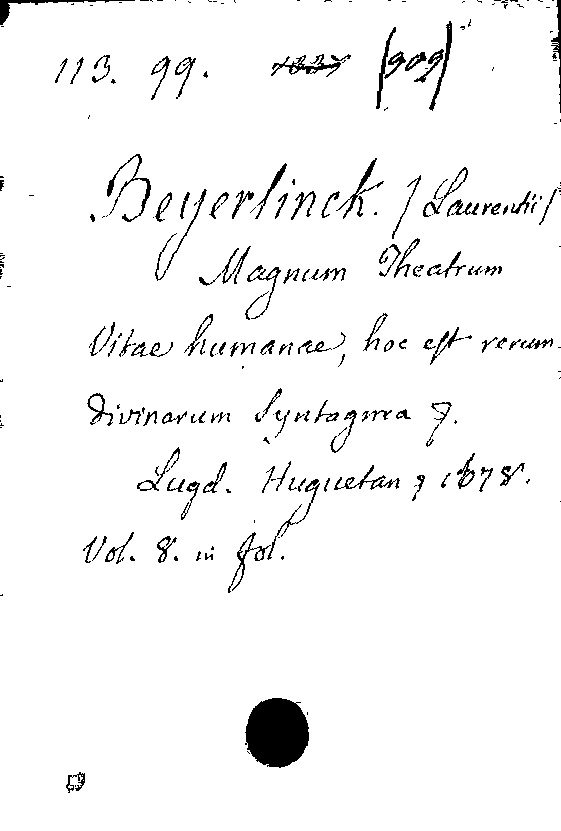 113. 99. (909)
Beyerlinck. / Laurentii /
Magnum Theatrum
Vitae humanae, hoc est rerum
divinarum Syntagma
Lugd. Huguetan 1678.
Vol. 8. in fol.